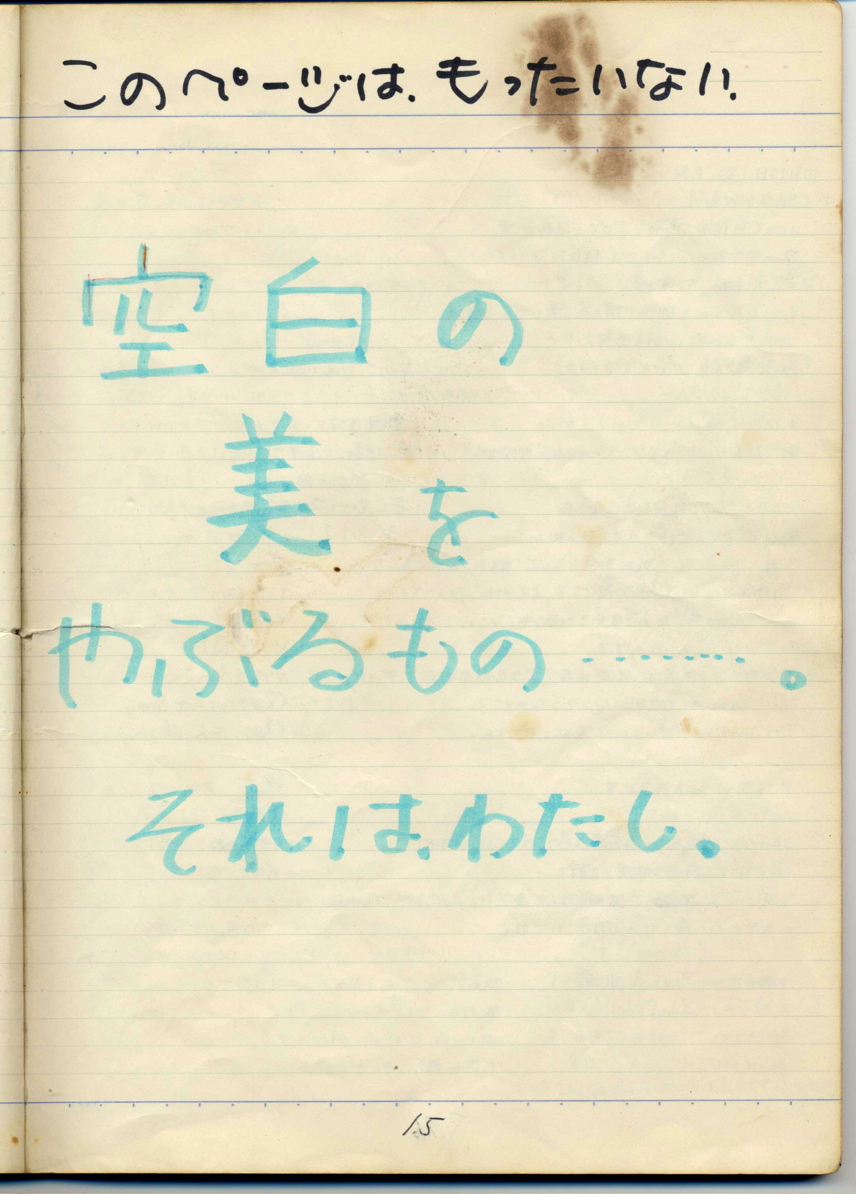 このページは、もったいない、
空白の
美を
やぶるもの………。
それは、わたし。
15